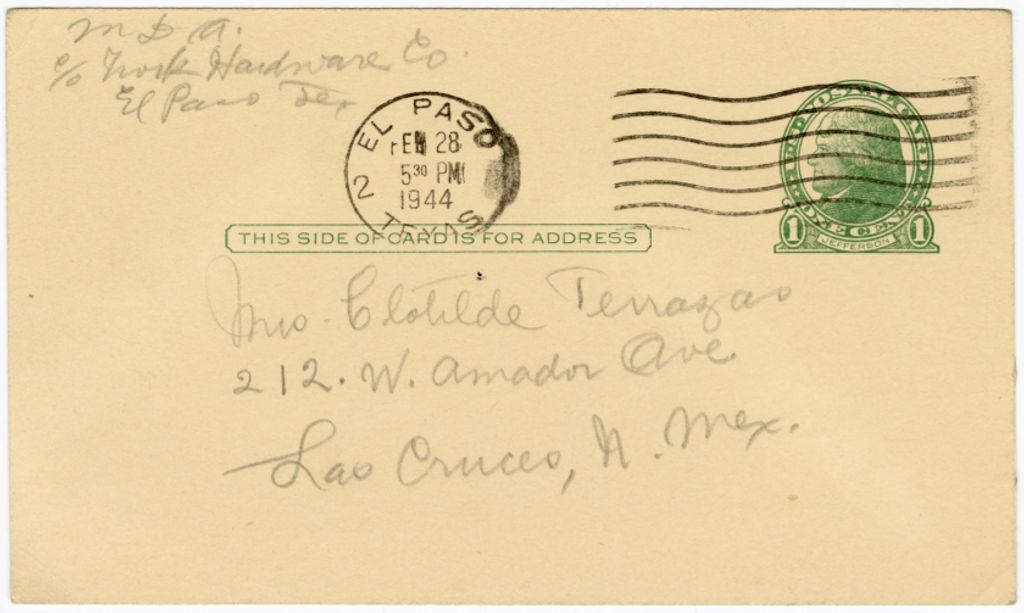 M D A.
c/o Hardware Co.
El Paso Tex
EL PASO
FEB 28
5³⁰ PM
1944
2 TEXAS
THIS SIDE OF CARD IS FOR ADDRESS
1 JEFFERSON 1
Mrs. Clotilde Terrazas
212. W. Amador Ave.
Las Cruces, N. Mex.